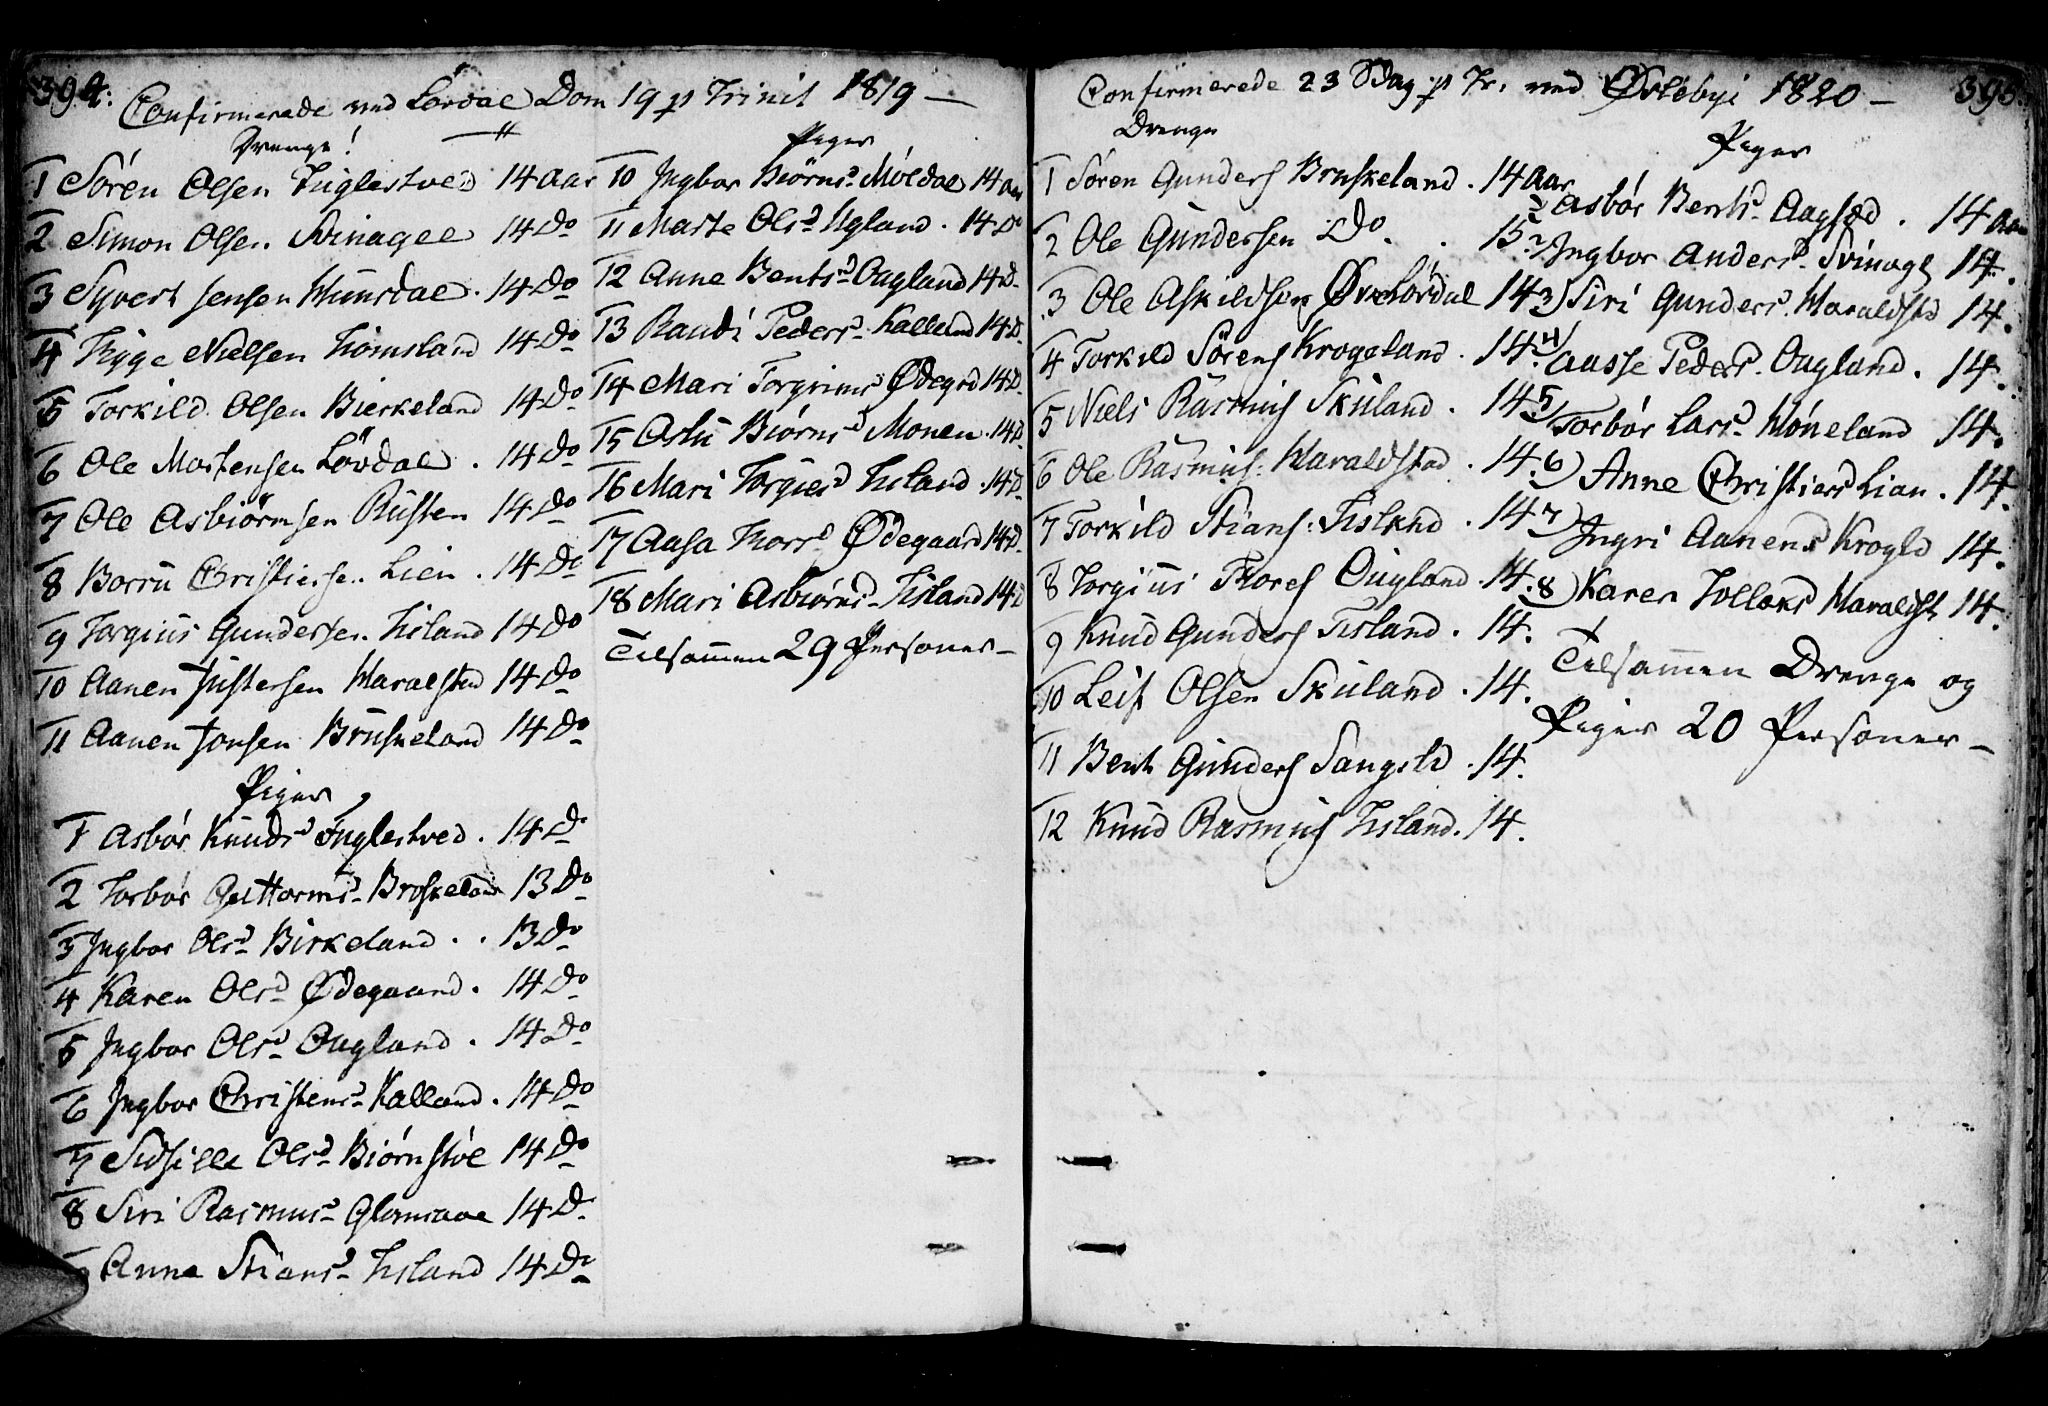 394.
Confirmerede ved Løvdal Dom 19 p Trinit 1819 —
Drenge!
1 Sören Olsen Fuglestved 14 Aar
2 Simon Olsen Svinagel 14 Do
3 Syvert Jensen Hunsdal. 14 Do
4 Thyge Nielsen Homsland 14 Do
5 Torkild Olsen Bierkeland 14 Do
6 Ole Mortensen Løvdal. 14 Do
7 Ole Asbiörnsen Rusten 14 Do
8 Borru Christiense. Lien. 14 Do
9 Torgius Gundersen Tisland 14 Do
10 Aanen Justersen Haralsted 14 Do
11 Aanen Jonsen Bruskeland 14 Do
Piger
1 Asbór Knudsd Fuglestved. 14 Do
2 Torbor Guttormsd Broskeland 13 Do
3 Ingbor Olsd Birkeland. . 13 Do
4 Karen Olsd Ødegaard. 14 Do
5 Ingbor Olsd Ougland. 14 Do
6 Ingbor Christensd Kalland. 14 Do
7 Sidsille Olsd Biørnstöl 14 Do
8 Siri Rasmusd Glomsaae 14 Do
Anne Stiansd Tisland 14 Do
Piger
10 Ingbor Biörnsd Móldal 14 Aar
11 Marte Olsd Ugland. 14 Do
12 Anne Bentsd Ougland 14 D
13 Randi Pedersd Kalland 14 D
14 Mari Torgrimsd Ødegrd 14 D
15 Aslu Biørnsd Monen. 14 D
16 Mari Torgiusd Tisland. 14 D
17 Aasa Thorsd Ødegaard 14 D
18 Mari Asbiørnsd Tisland 14 D
Tilsammen 29 Personer —
395.
Confirmerede 23 Sdag p Tr. ved Østebyi 1820 —
Drenge
1 Sóren Gunders Bruskeland. 14 Aar
2 Ole Gundersen Do. . 15
3 Ole Askildsen Øvrelórdal 14
4 Torkild Sórens Krogeland. 14
5 Niels Rasmus Skuland. 14
6 Ole Rasmus: Haraldstad. 14.
7 Torkild Stians: Tisland. 14
8 Torgius Thores Ougland. 14.
9 Knud Gunders Tisland. 14.
10 Leif Olsen Skuland. 14.
11 Bent Gunders Sangsld. 14.
12 Knud Rasmus Tisland. 14.
Piger
Asbór Bentsd Aagsæd. 14 Aar
2 Ingbor Andersd Svinagl 14.
3) Siri Gundersd Haraldstd 14.
4) Aasse Pedersd Ougland. 14.
5) Torbór Larsd Hóneland 14.
6) Anne Christiers Lian. 14.
7) Ingri Aanensd Krogld 14.
8) Karen Tollaksd Haraldst 14.
Tilsammen Drenge og
Piger 20 Personer —